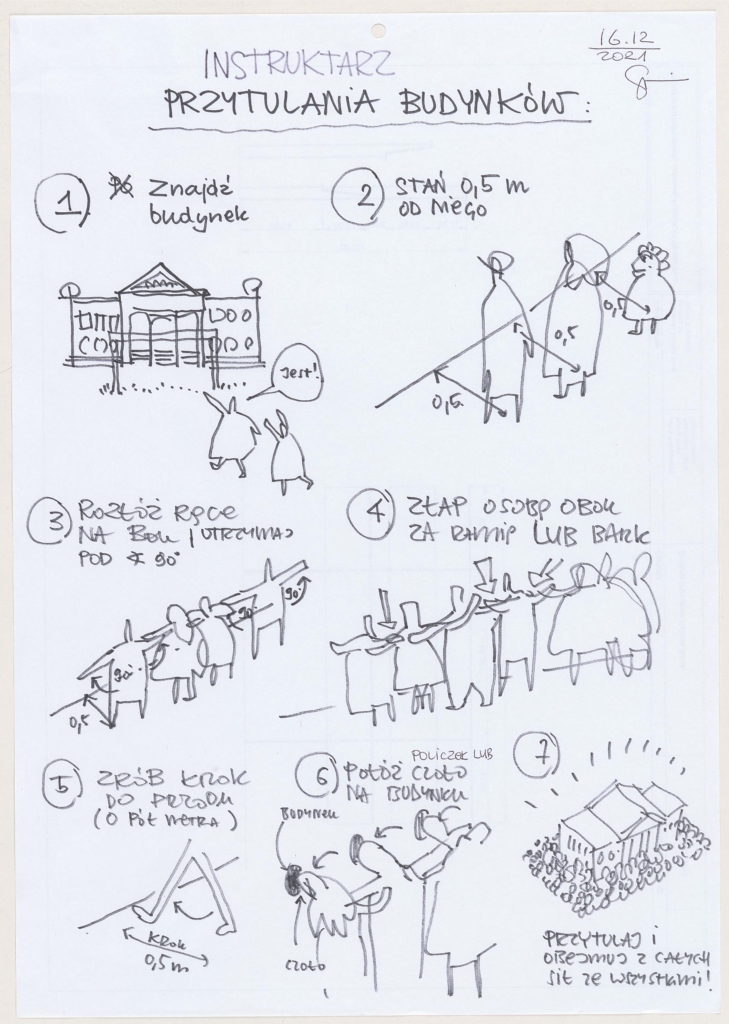 16.12
2021
INSTRUKTARZ
PRZYTULANIA BUDYNKÓW:
1 Znajdź
budynek
2 STAŃ 0,5 m
OD NIEGO
Jest!
0,5
0,5
0,5
3 ROZŁÓŻ RĘCE
NA BOKI, UTRZYMAJ
POD ∢ 90°
90°
90°
90°
0,5
4 ZŁAP OSOBĘ OBOK
ZA RAMIĘ LUB BARK
5 ZRÓB KROK
DO PRZODU
(O PÓŁ METRA)
KROK
0,5 m
6 POLICZEK LUB
POŁÓŻ CZOŁO
NA BUDYNKU
BUDYNEK
CZOŁO
7
PRZYTULAJ I
OBEJMUJ Z CAŁYCH
SIŁ ZE WSZYSTKIMI!